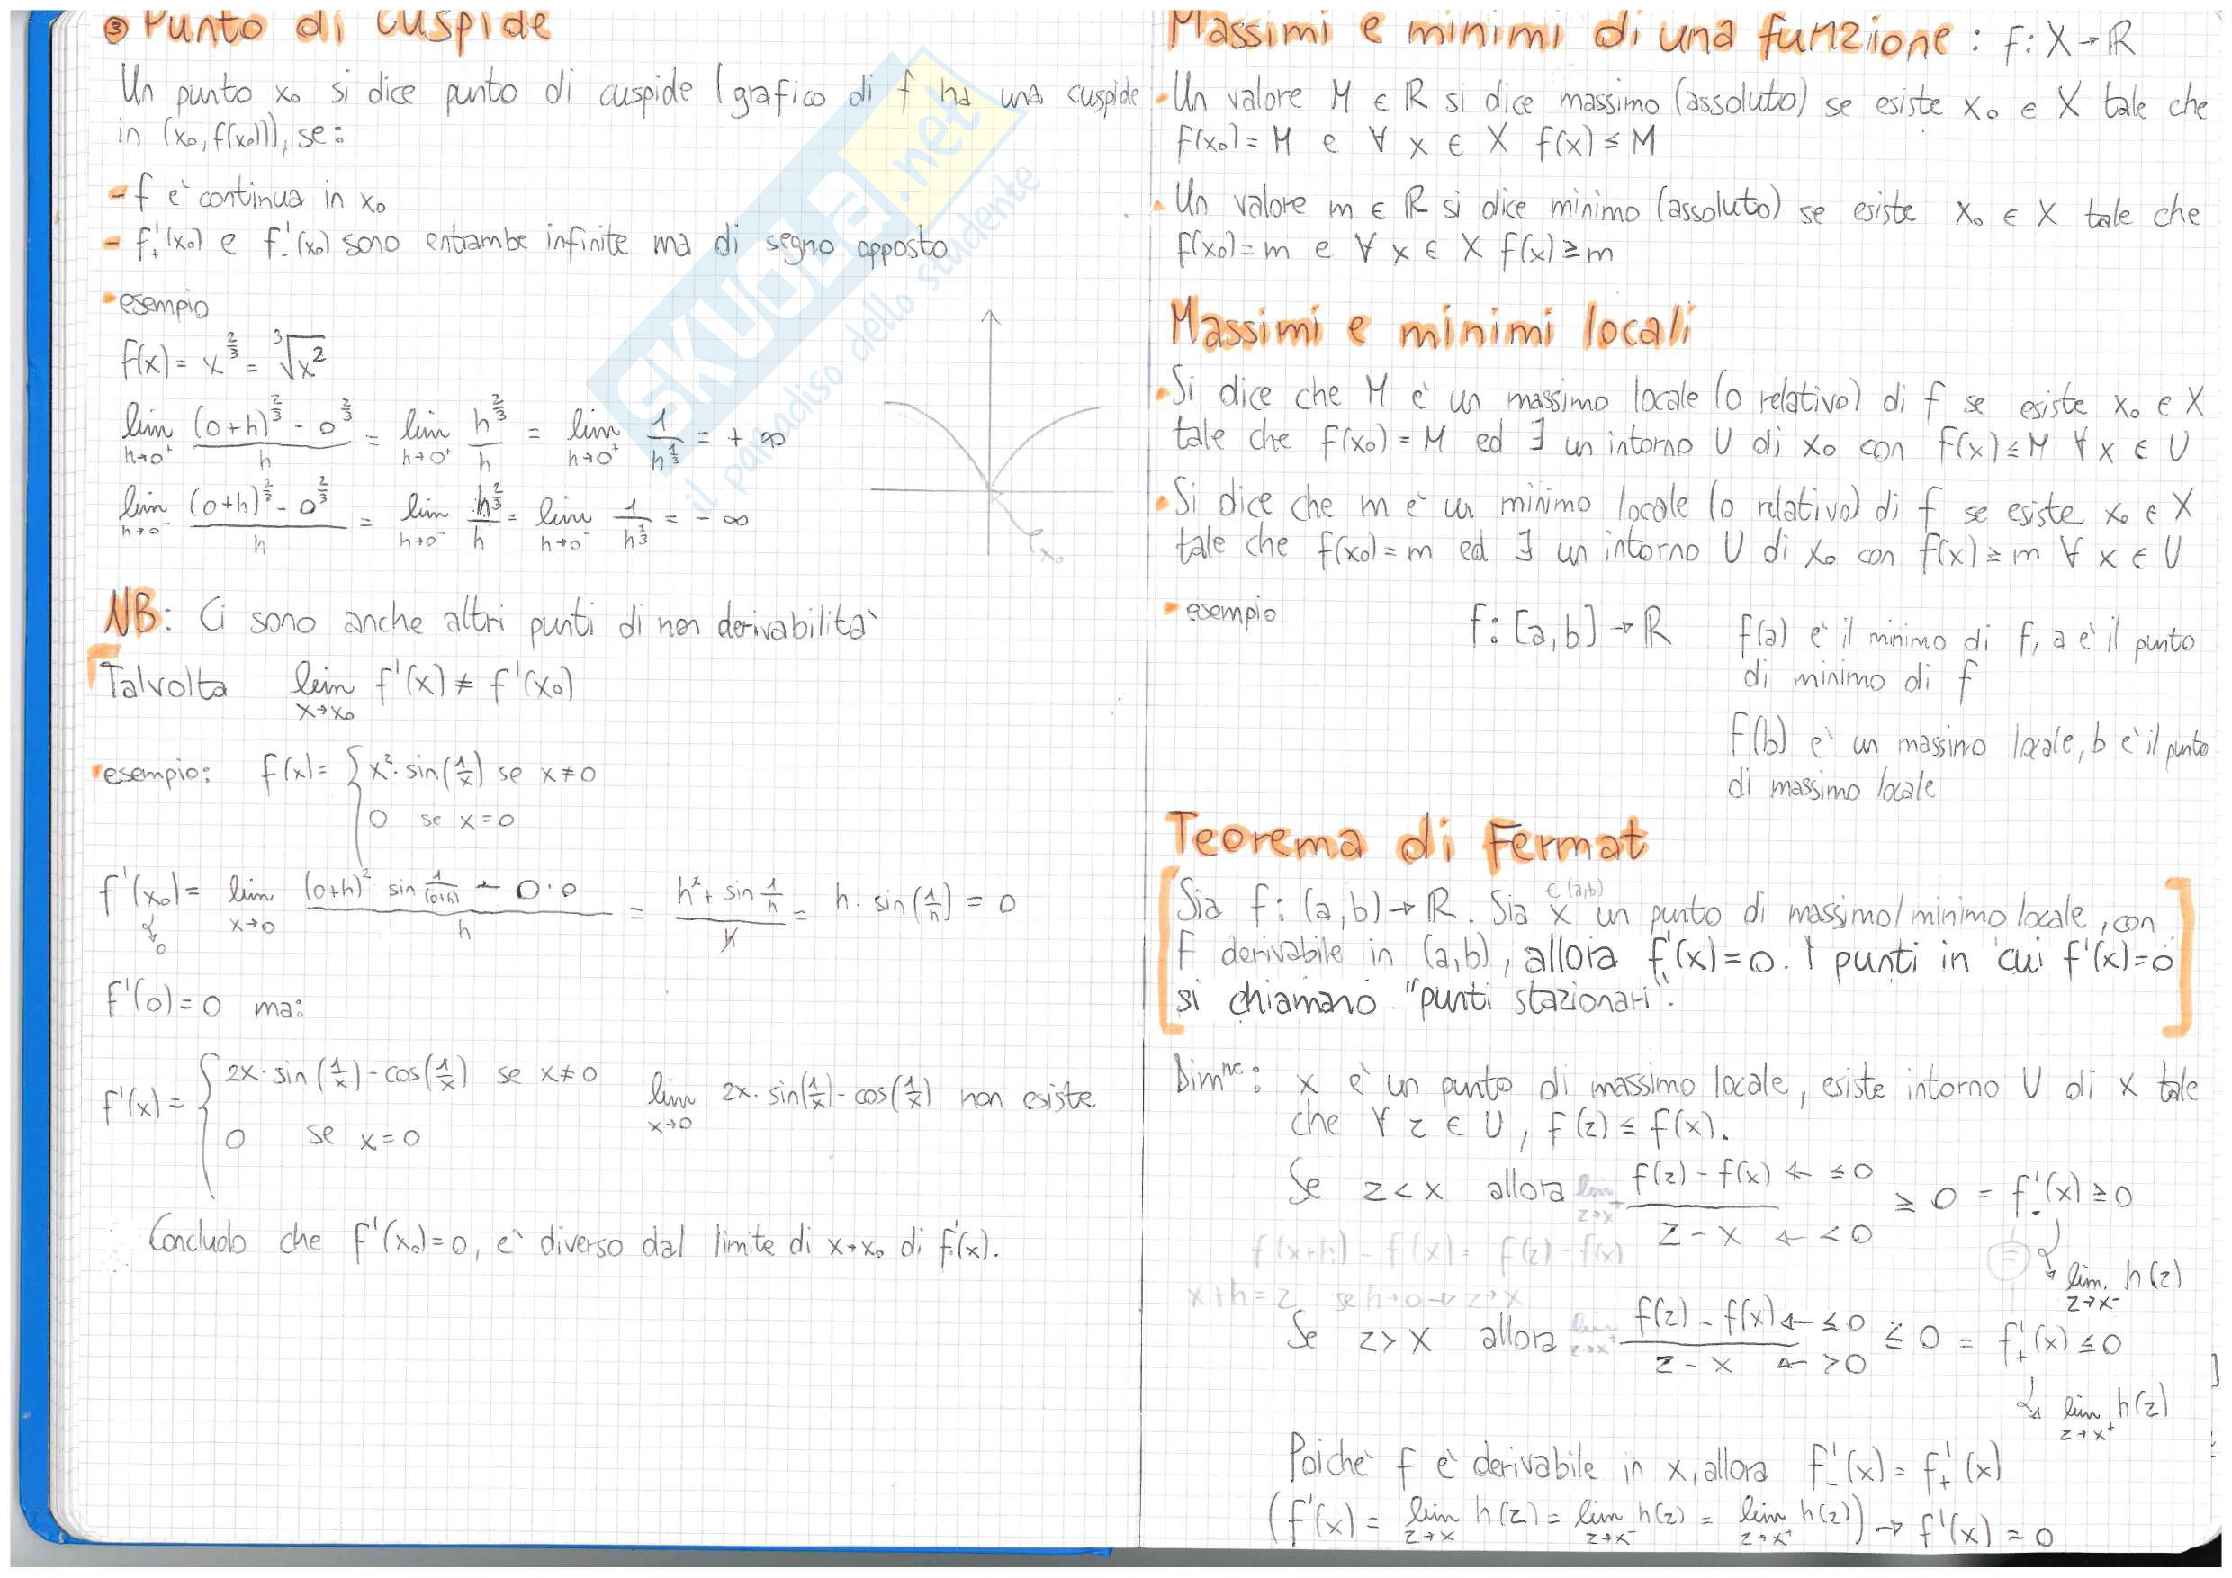 ③ Punto di cuspide
Un punto x₀ si dice punto di cuspide (grafico di f ha una cuspide
in (x₀, f(x₀))), se:
- f è continua in x₀
- f'₊(x₀) e f'₋(x₀) sono entrambe infinite ma di segno opposto
• esempio
f(x) = x^(2/3) = ∛x²
lim h→0⁺ ((0+h)^(2/3) - 0^(2/3))/h = lim h→0⁺ h^(2/3)/h = lim h→0⁺ 1/h^(1/3) = +∞
lim h→0⁻ ((0+h)^(2/3) - 0^(2/3))/h = lim h→0⁻ h^(2/3)/h = lim h→0⁻ 1/h^(1/3) = -∞
x₀
NB: Ci sono anche altri punti di non derivabilità
Talvolta lim x→x₀ f'(x) ≠ f'(x₀)
• esempio: f(x) = { x²·sin(1/x) se x≠0
0 se x=0
f'(x₀) = lim x→0 ((0+h)² sin 1/(0+h) - 0·0)/h = (h² + sin 1/h)/h = h·sin(1/h) = 0
0
f'(0) = 0 ma:
f'(x) = { 2x·sin(1/x) - cos(1/x) se x≠0
0 se x=0
lim x→0 2x·sin(1/x) - cos(1/x) non esiste
Concludo che f'(x₀)=0, è diverso dal limite di x→x₀ di f'(x).
Massimi e minimi di una funzione: f: X→ℝ
• Un valore M ∈ ℝ si dice massimo (assoluto) se esiste x₀ ∈ X tale che
f(x₀) = M e ∀ x ∈ X f(x) ≤ M
• Un valore m ∈ ℝ si dice minimo (assoluto) se esiste x₀ ∈ X tale che
f(x₀) = m e ∀ x ∈ X f(x) ≥ m
Massimi e minimi locali
• Si dice che M è un massimo locale (o relativo) di f se esiste x₀ ∈ X
tale che f(x₀) = M ed ∃ un intorno U di x₀ con f(x) ≤ M ∀ x ∈ U
• Si dice che m è un minimo locale (o relativo) di f se esiste x₀ ∈ X
tale che f(x₀) = m ed ∃ un intorno U di x₀ con f(x) ≥ m ∀ x ∈ U
• esempio f: [a,b] → ℝ f(a) è il minimo di f, a è il punto
di minimo di f
f(b) è un massimo locale, b è il punto
di massimo locale
Teorema di Fermat
∈(a,b)
Sia f: (a,b) → ℝ. Sia x un punto di massimo/minimo locale, con
f derivabile in (a,b), allora f'(x)=0. I punti in cui f'(x)=0
si chiamano "punti stazionari".
Dim^ne: x è un punto di massimo locale, esiste intorno U di x tale
che ∀ z ∈ U, f(z) ≤ f(x).
Se z < x allora lim z→x⁻ (f(z) - f(x) ← ≤0)/(z - x ← <0) ≥ 0 = f'₋(x) ≥ 0
f(x+h) - f(x) = f(z) f(x)
lim z→x⁻ h(z)
x+h=z se h→0 → z→x
Se z > x allora lim z→x⁺ (f(z) - f(x) ← ≤0)/(z - x ← >0) ≤ 0 = f'₊(x) ≤ 0
lim z→x⁺ h(z)
Poiché f è derivabile in x, allora f'₋(x) = f'₊(x)
(f'(x) = lim z→x h(z) = lim z→x⁻ h(z) = lim z→x⁺ h(z)) → f'(x) = 0
SKUOLA.net
il paradiso dello studente